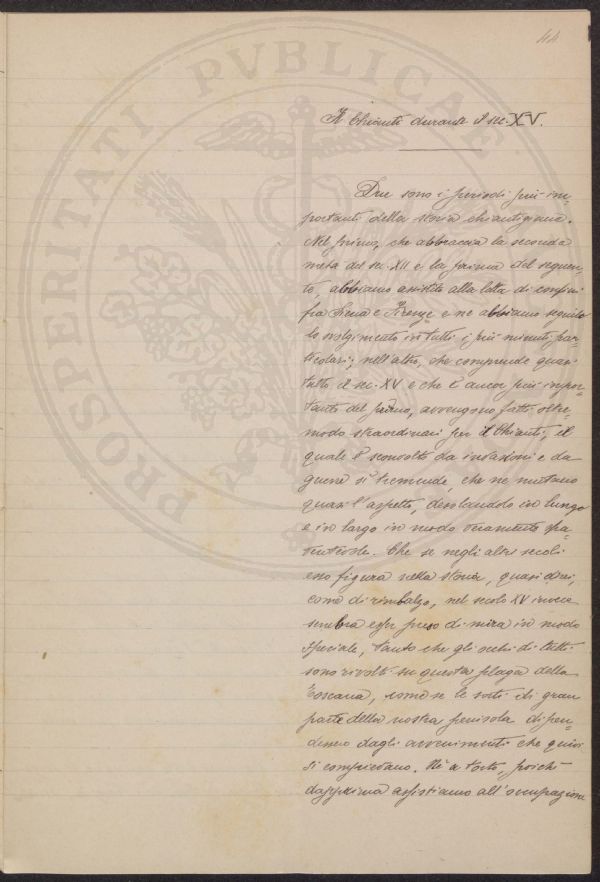 44
PROSPERITATI PVBLICAE
Il Chianti durante il sec. XV.
Due sono i periodi più im-
portanti della storia chiantigiana.
Nel primo, che abbraccia la seconda
metà del sec. XII e la prima del seguen-
to, abbiamo assistito alla lotta di confini
fra Siena e Firenze e ne abbiamo seguito
lo svolgimento in tutti i più minuti par-
ticolari; nell'altro, che comprende quasi
tutto il sec. XV e che è ancor più impor-
tante del primo, avvengono fatti oltre-
modo straordinari per il Chianti, il
quale è sconvolto da invasioni e da
guerre sì tremende, che ne mutano
quasi l'aspetto, desolandolo in lungo
e in largo in modo veramente spa-
ventevole. Che se negli altri secoli
esso figura nella storia, quasi direi,
come di rimbalzo, nel secolo XV invece
sembra esser preso di mira in modo
speciale, tanto che gli occhi di tutti
sono rivolti su questa plaga della
Toscana, come se le sorti di gran
parte della nostra penisola dipen-
dessero dagli avvenimenti che quivi
si compievano. Nè a torto, poichè
dapprima assistiamo all'occupazione